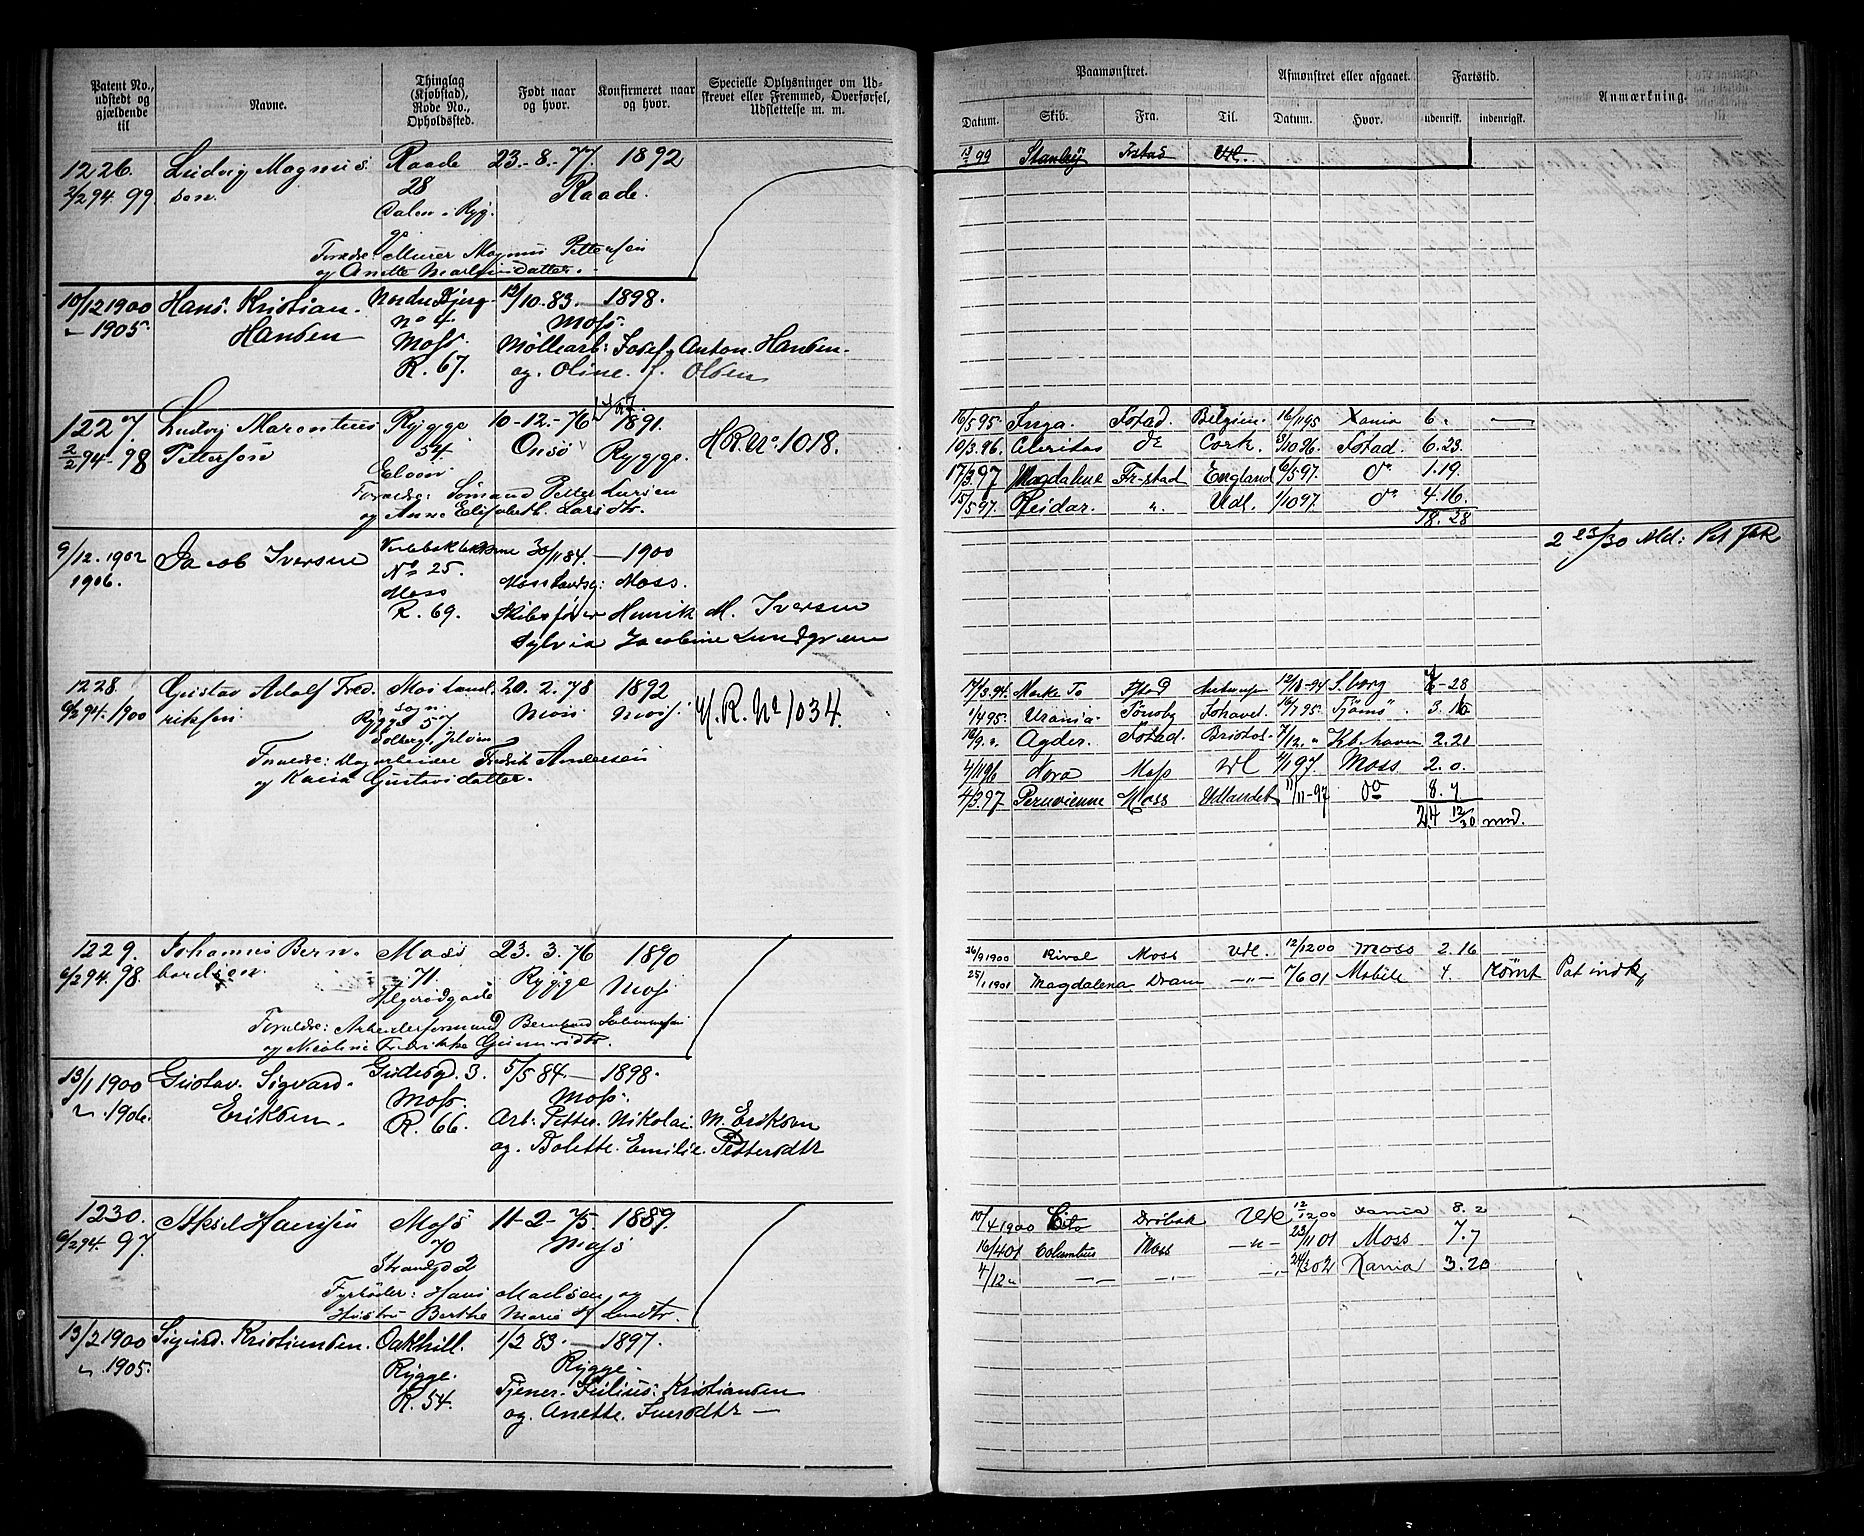 Patent No., udstedt og gjældende til
Navne.
Thinglag (Kjøbstad), Rode No., Opholdssted.
Født naar og hvor.
Konfirmeret naar og hvor.
Specielle Oplysninger om Udskrevet eller Fremmed, Overførsel, Udslettelse m. m.
1226. Ludvig Magnus Raade 23-8-77. 1892
2/2 94. 99. sen. 28 Raade.
Dalen i Ryg-
ge
Foræld: Murer Magnus Pettersen
og Anette Martinsdatter.
10/12 1900 Hans. Kristian. 12/10.83. — 1898.
" 1905. Hansen No 4. Moss.
Moss. Møllearb: Josef. Anton. Hansen.
R. 67. og. Oline. f. Olsen
1227. Ludvig Marentius Rygge 10-12-76 1891.
2/2 94-98 Pettersen 54 Onsø Rygge. HR No 1018.
Foræld: Sømand Petter Larsen
og Anne Elisabeth Larsdtr.
9/12. 1902 Jacob Iversen 30/11 84. — 1900
1906. No 25. Moss Landsg: Moss.
Moss
R. 69. Skibsfører Henrik M. Iversen
Sylvia Jacobine Lundgreen
1228. Gustav Adolf Fred- Moss Land- 20. 2. 78 1892
6/2 94. 1900 riksen sogn. Moss Moss. H. R. No 1034.
Rygge 57
Solberg, Jeløen
Foræld: Dagarbeider Fredrik Andersen
og Karia Gustavsdatter.
1229. Johannes Bern- Moss 23. 3. 76 1890
6/2 94. 98. hardsen. 71. Rygge Moss
Helgerødgade
Forældre: Arbeidsformand Bernhard Johannesen
og Nicoline Fredrikke Gunnersdtr.
13/1 1900 Gustav. Sigvard. Gudesgd. 3. 5/5 84 — 1898.
" 1906. Eriksen. Moss. Moss.
R. 66. Arb: Petter. Nikolai. M. Eriksen
og. Bolette. Emilie. Pettersdtr
1230. Aksel Hansen Moss 11-2-75. 1889.
6/2 94. 97. 70 Moss
Strandgd 2
Fyrbøder: Hans Madsen og
Hustru Berthe Marie
13/2 1900 Sigurd. Kristiansen. Oakhill. 1/2 83. — 1897.
" 1905. Rygge. Rygge.
R. 54. Tjener. Julius. Kristiansen
og. Anette. Iversdtr —
Paamønstret.
Afmønstret eller afgaaet.
Fartstid.
Anmærkning.
Datum. Skib. Fra. Til. Datum. Hvor. udenrigsk. indenrigsk.
99 Stanley Fstad Udl.
16/5 95. Inga. Fstad. Belgien. 16/11 95 Xania 6. —
10/3.96. Claritas do Cork. 3/10 96. Fstad. 6.23.
17/3.97 Magdalene Fr-stad England 6/5 97. do 1.19.
15/5 97. Reidar. " Udl. 1/10 97. do 4.16.
18. 28
2 23/30 Ald: Pat Fsk
17/3.94. Marke To Fstad Antwerpen 12/11-94 S.borg 7-28
1/4 95. Urania. Tønsbg 16/7 95. Tjømø. 3. 16
18/9. " Agder. Fstad. Bristol. 7/12. " Kb.havn 2.21
4/11 96 Nora Moss Udl 4/1 97. Moss 2. 0.
4/3.97 Peruvienne Moss Udlandet 11/11-97 do 8. 7.
24 12/30 md.
26/9 1900 Rival Moss Udl. 12/12 00 Moss 2. 16
25/1 1901 Magdalena Dram —"— 7/6 01 Mobile 4. rømt Pat indk.
10/4 1900 Cito Drøbak Udl 12/12 00 Xania 8. 2
16/4 01 Columbus Moss —"— 23/11 01 Moss 7. 7
4/12 " —"— —"— —"— 24/3 02 Xania 3. 20